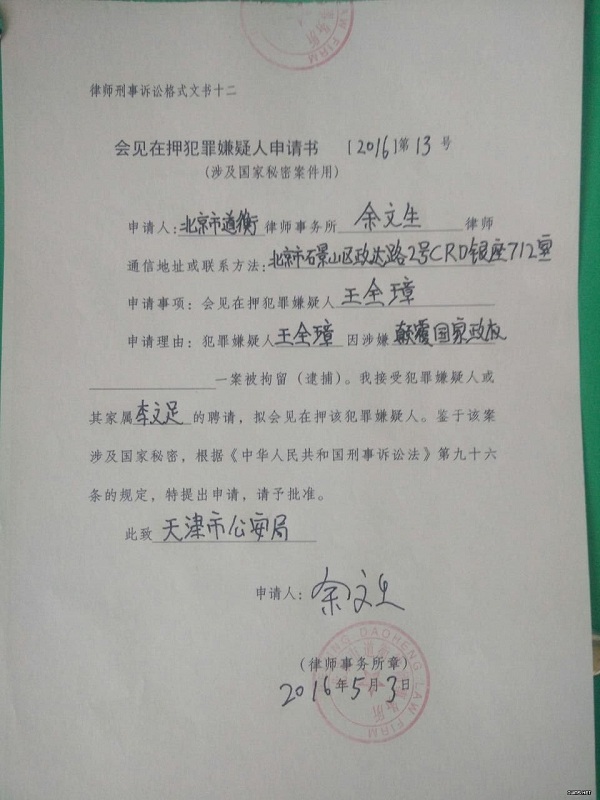 LAW FIRM
律师刑事诉讼格式文书十二
会见在押犯罪嫌疑人申请书 [2016]第13号
(涉及国家秘密案件用)
申请人:北京市道衡律师事务所 余文生 律师
通信地址或联系方法:北京市石景山区政达路2号CRD银座712室
申请事项:会见在押犯罪嫌疑人 王全璋
申请理由:犯罪嫌疑人王全璋因涉嫌颠覆国家政权
一案被拘留(逮捕)。我接受犯罪嫌疑人或
其家属李文足的聘请,拟会见在押该犯罪嫌疑人。鉴于该案
涉及国家秘密,根据《中华人民共和国刑事诉讼法》第九十六
条的规定,特提出申请,请予批准。
此致 天津市公安局
申请人:余文生
(律师事务所章)
DAOHENG LAW FIRM
2016年5月3日